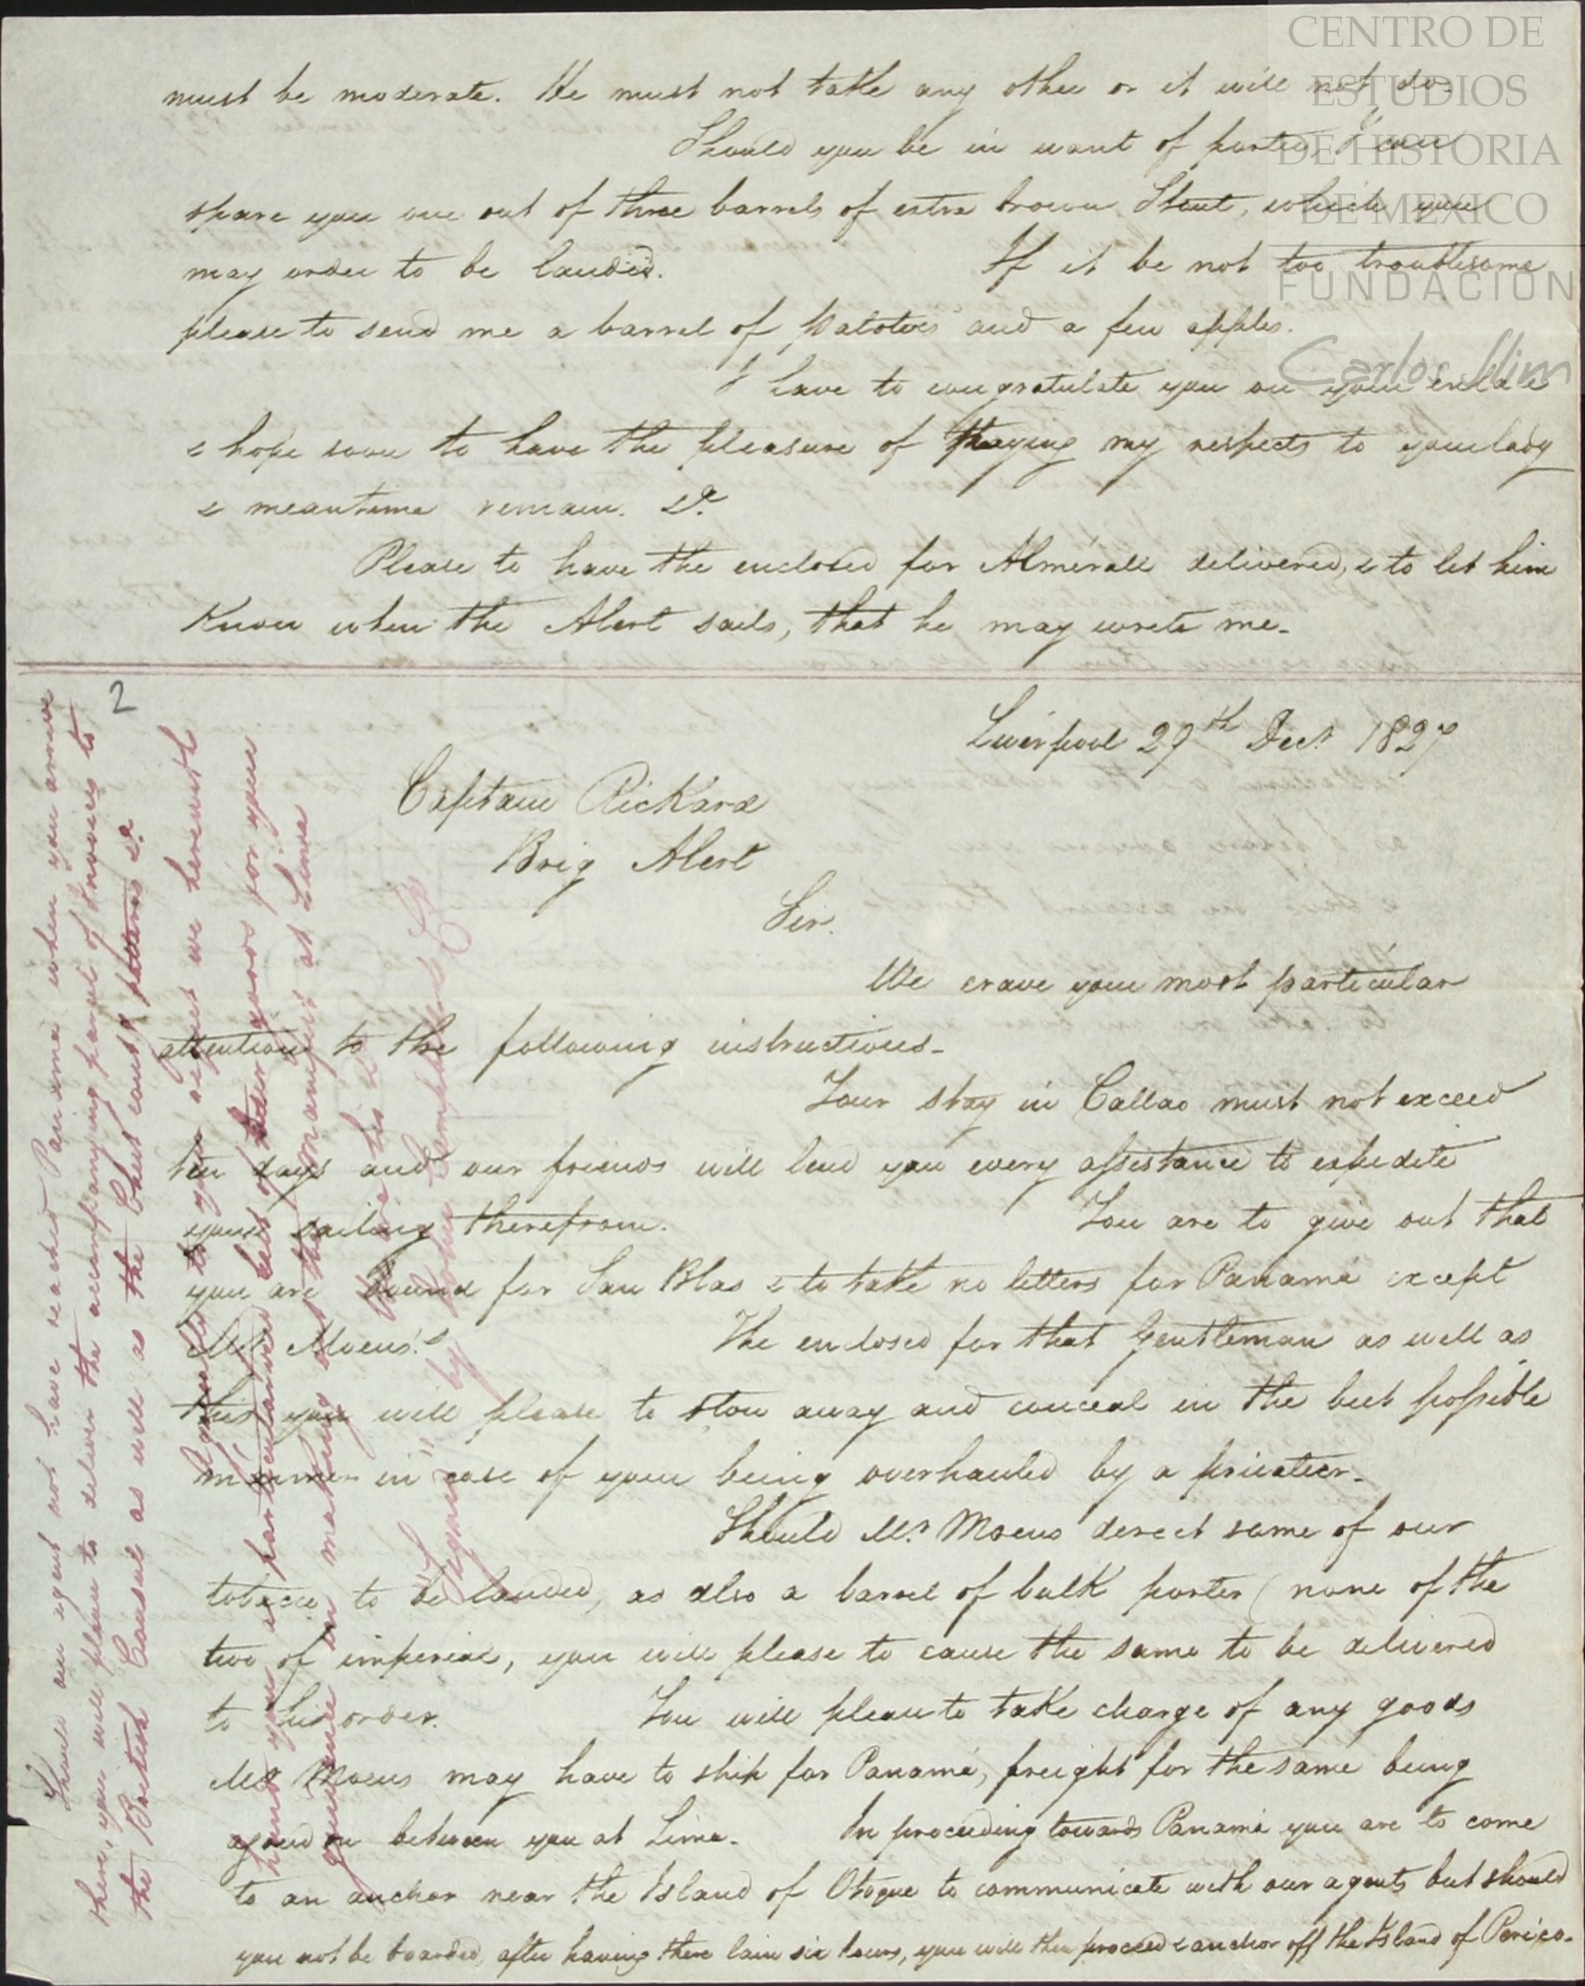 CENTRO DE
ESTUDIOS
DE HISTORIA
DE MEXICO
FUNDACIÓN
Carlos Slim
must be moderate. He must not take any other or it will not do.
Should you be in want of porter, I can
spare you one out of three barrels of extra brown Stout, which you
may order to be landed. If it be not too troublesome
please to send me a barrel of potatoes and a few apples.
I have to congratulate you on your
& hope soon to have the pleasure of paying my respects to your lady
& meantime remain. &c.
Please to have the enclosed for Almérall delivered, & to let him
Know when the Alert sails, that he may write me.
2
Liverpool 29th Dect 1827
Captain Rickard
Brig Alert
Sir.
We crave your most particular
attention to the following instructions.
Your stay in Callao must not exceed
ten days and our friends will lend you every assistance to expedite
your sailing therefrom. You are to give out that
you are bound for San Blas & to take no letters for Panamá except
Mr Moens's The enclosed for that Gentleman as well as
this you will please to stow away and conceal in the best possible
manner in case of your being overhauled by a privateer.
Should Mr. Moens direct some of our
tobacco to be landed, as also a barrel of bulk porter (none of the
two of imperial, you will please to cause the same to be delivered
to his order. You will please to take charge of any goods
Mr Moens may have to ship for Panamá, freight for the same being
agreed on between you at Lima. In proceeding towards Panamá you are to come
to an anchor near the Island of Otoque to communicate with our agents but should
you not be boarded, after having there lain six hours, you will then proceed & anchor off the Island of Perico.
Should our agent not have reached Panama when you arrive
there, you will please to deliver the accompanying parcel of Invoices to
the British Consul as well as the letters &c.
Agreeably to your desire we herewith
hand you a particularized list of goods for your
guidance in making out the manifest at Lima
"Signed" by John Campbell & Co